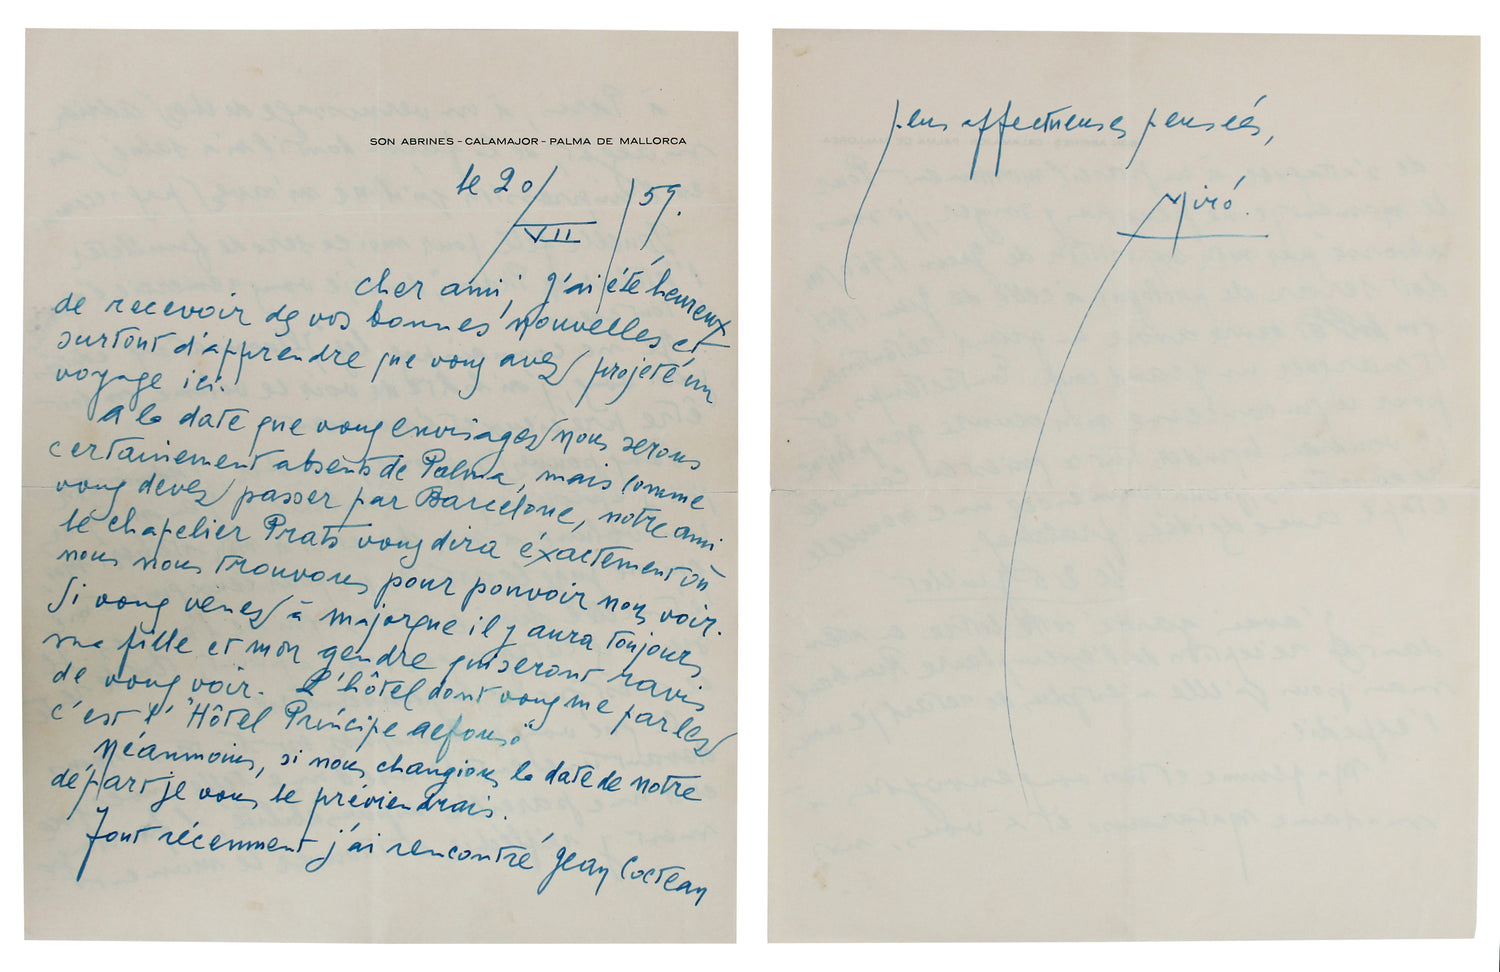 SON ABRINES - CALAMAJOR - PALMA DE MALLORCA
le 20/VII/59.
cher ami, j'ai été heureux
de recevoir de vos bonnes nouvelles et
surtout d'apprendre que vous avez projeté un
voyage ici.
A la date que vous envisagez nous serons
certainement absents de Palma, mais comme
vous devez passer par Barcelone, notre ami
le chapelier Prats vous dira éxactement où
nous nous trouvons pour pouvoir nous voir.
Si vous venez à majorque il y aura toujours
ma fille et mon gendre qui seront ravis
de vous voir. L'hôtel dont vous me parlez
c'est l' "Hôtel Príncipe Alfonso"
Néanmoins, si nous changions la date de notre
départ je vous le préviendrais.
Tout récemment j'ai rencontré Jean Cocteau
affectueuses pensées,
Miró.